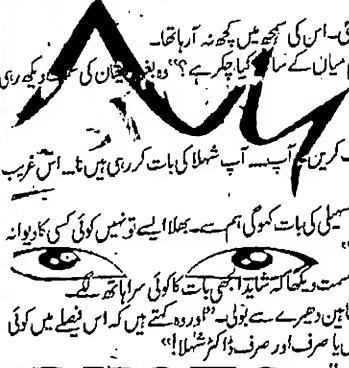 ئی۔ اس کی سمجھ میں کچھ نہ آرہا تھا۔
میاں کے سا کیا چکر ہے؟“ وہ بغور کی دیکھ رہی
کریں آپ ۔۔۔۔ آپ شہلا کی بات کر رہی ہیں نا ۔۔۔ اس غریب
سہیلی کی بات کہو گی ہم سے۔ بھلا ایسے تو نہیں کوئی کسی کا دیوانہ
سمت دیکھا کہ شاید ابھی بات کا کوئی سرا ہاتھ لگے۔
دھیرے سے بولی۔ ”اور وہ کہتے ہیں کہ اس فیصلے میں کوئی
یا صرف اور صرف ڈاکٹر شہلا!“